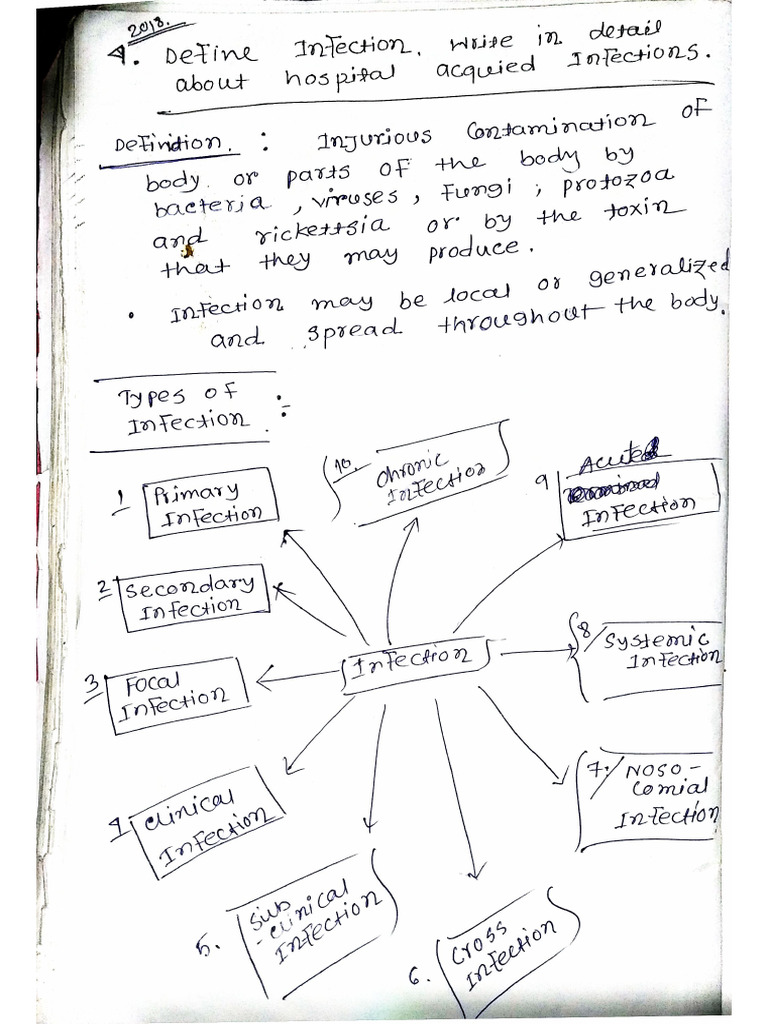 2018.
9. Define Infection. Write in detail
about hospital acquied Infections.
Definition : Injurious Contamination of
body or parts of the body by
bacteria, viruses, Fungi, protozoa
and rickettsia or by the toxin
that they may produce.
• Infection may be local or generalized
and spread throughout the body.
Types of
Infection :-
Infection
1 Primary
Infection
2 Secondary
Infection
3 Focal
Infection
4. Clinical
Infection
5. Sub
-clinical
Infection
6. Cross
Infection
7. Noso-
comial
Infection
8 Systemic
Infection
9 Acute
Infection
10. Chronic
Infection